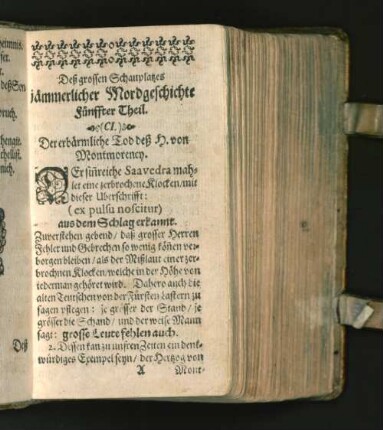 heimnis.
ser.
deß Son
pruch.
chenate.
theilist.
mich.
Deß
Deß grossen Schauplatzes
jämmerlicher Mordgeschichte
Fünffter Theil.
(CI.)
Der erbärmliche Tod deß H. von
Montmorency.
DEr sinreiche Saavedra mah-
let eine zerbrochene Klocken/mit
dieser Uberschrifft:
(ex pulsu noscitur)
aus dem Schlag erkannt.
Zuverstehen gebend/ daß grosser Herren
Fehler und Gebrechen so wenig können ver-
borgen bleiben/als der Mißlaut einer zer-
brochnen Klocken/welche in der Höhe von
iederman gehöret wird. Dahero auch die
alten Teutschen von der Fürsten Lastern zu
sagen pflegen: je grösser der Stand/ je
grösser die Schand/ und der weise Mann
sagt: grosse Leute fehlen auch.
2. Dessen kan zu unsren Zeiten ein denk-
würdiges Exempel seyn/ der Hertzog von
A Mont-